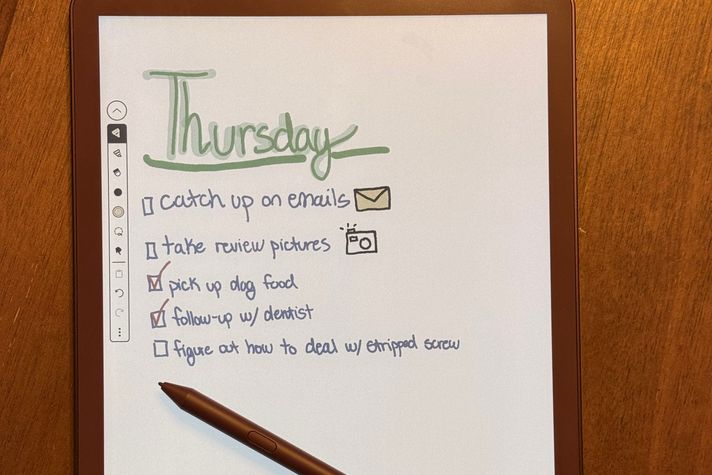 Thursday
catch up on emails
take review pictures
pick up dog food
follow-up w/ dentist
figure out how to deal w/ stripped screw